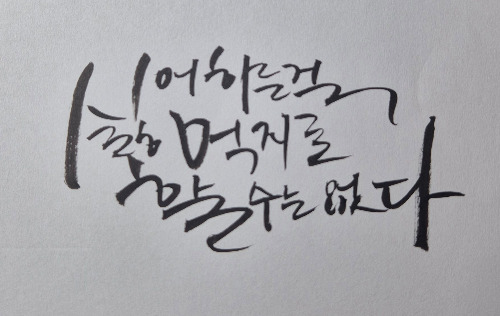 싫어하는걸
억지로
수는 없다